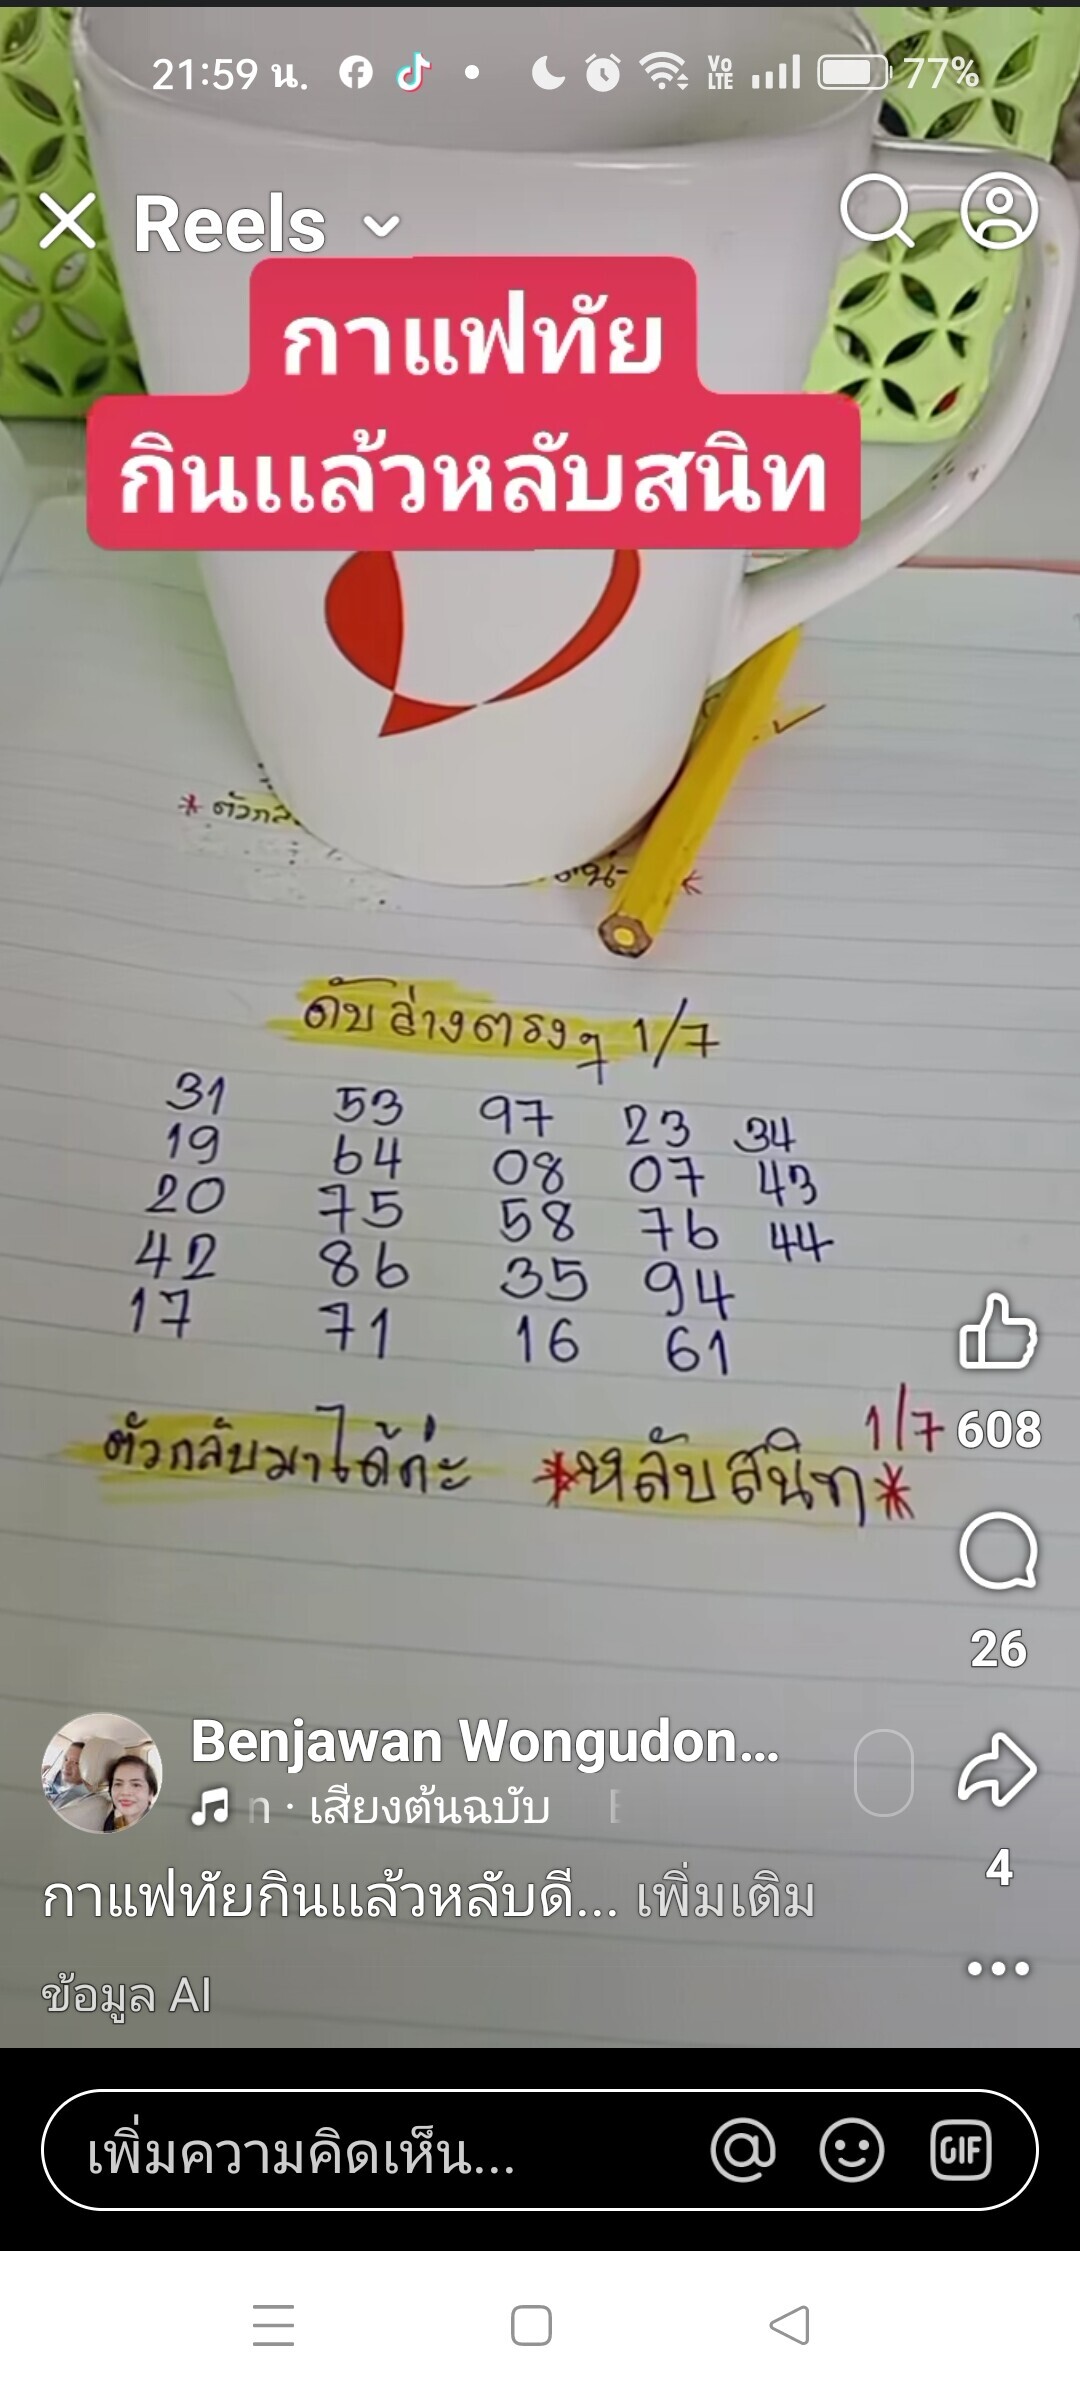 21:59 น. Vo LTE 77%
Reels
กาแฟทัย
กินแล้วหลับสนิท
* ตัวกล
ดับล่างตรงๆ 1/7
31 53 97 23 34
19 64 08 07 43
20 75 58 76 44
42 86 35 94
17 71 16 61
ตัวกลับมาได้ค่ะ *หลับสนิท* 1/7
608
26
Benjawan Wongudon...
ก · เสียงต้นฉบับ
4
กาแฟทัยกินแล้วหลับดี... เพิ่มเติม
ข้อมูล AI
เพิ่มความคิดเห็น...
GIF